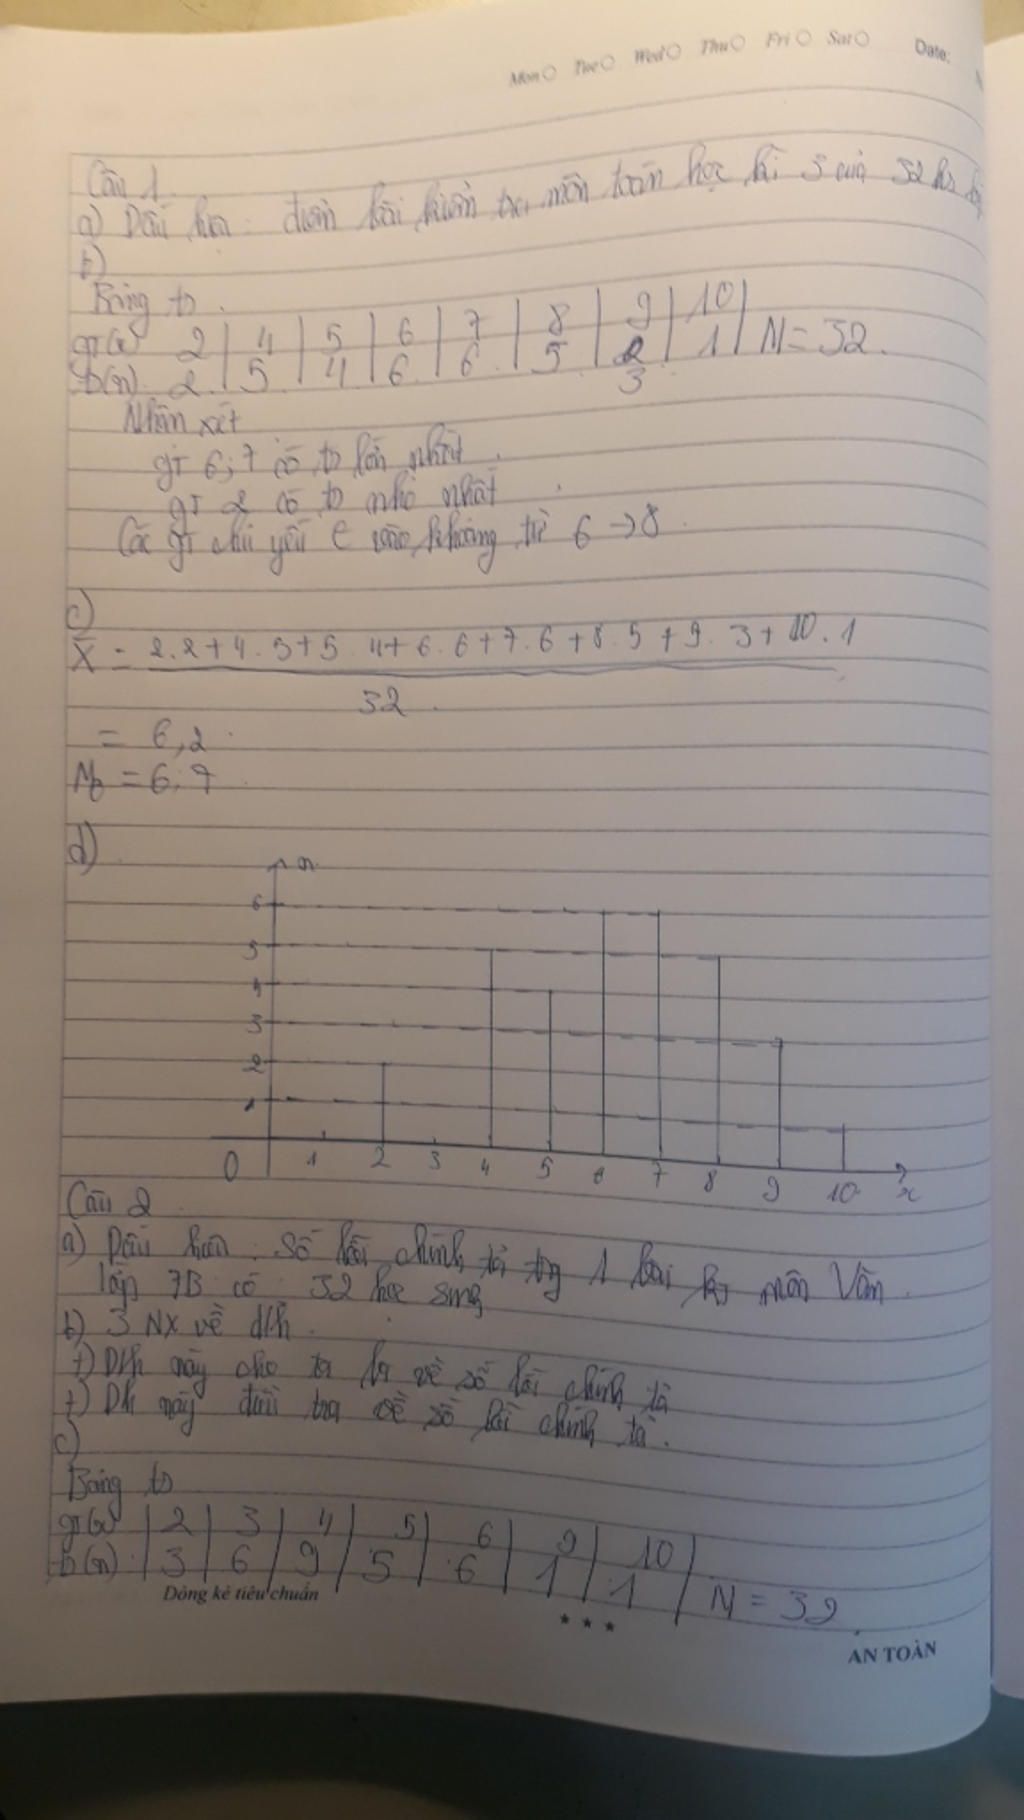 Mon Tue Wed Thu Fri Sat Date:
Câu 1
a) Dấu hiệu: điểm bài kiểm tra môn toán học kì của 32 hs
b)
Bảng ts
gt(x) 2 4 5 6 7 8 9 10
ts(n) 2 5 4 6 6 5 3 1 N = 32.
Nhận xét
gt 6; 7 có ts lớn nhất.
gt 2 có ts nhỏ nhất
Các gt chủ yếu € vào khoảng từ 6 → 8.
c)
X̄ = 2.2 + 4.5 + 5.4 + 6.6 + 7.6 + 8.5 + 9.3 + 10.1
32
= 6,2
M₀ = 6; 7
d)
n
6
5
4
3
2
1
0 1 2 3 4 5 6 7 8 9 10 x
Câu 2
a) Dấu hiệu: Số lỗi chính tả tg 1 bài kt môn Văn
lớp 7B có 32 học sinh
b) 3 NX về d/h
+) D/h này cho ta về số lỗi chính tả
+) Dh này điều tra về số lỗi chính tả.
c)
Bảng ts
gt(x) 2 3 4 5 6 9 10
ts(n) 3 6 9 5 6 1 1 N = 32
Dòng kẻ tiêu chuẩn
* * *
AN TOÀN